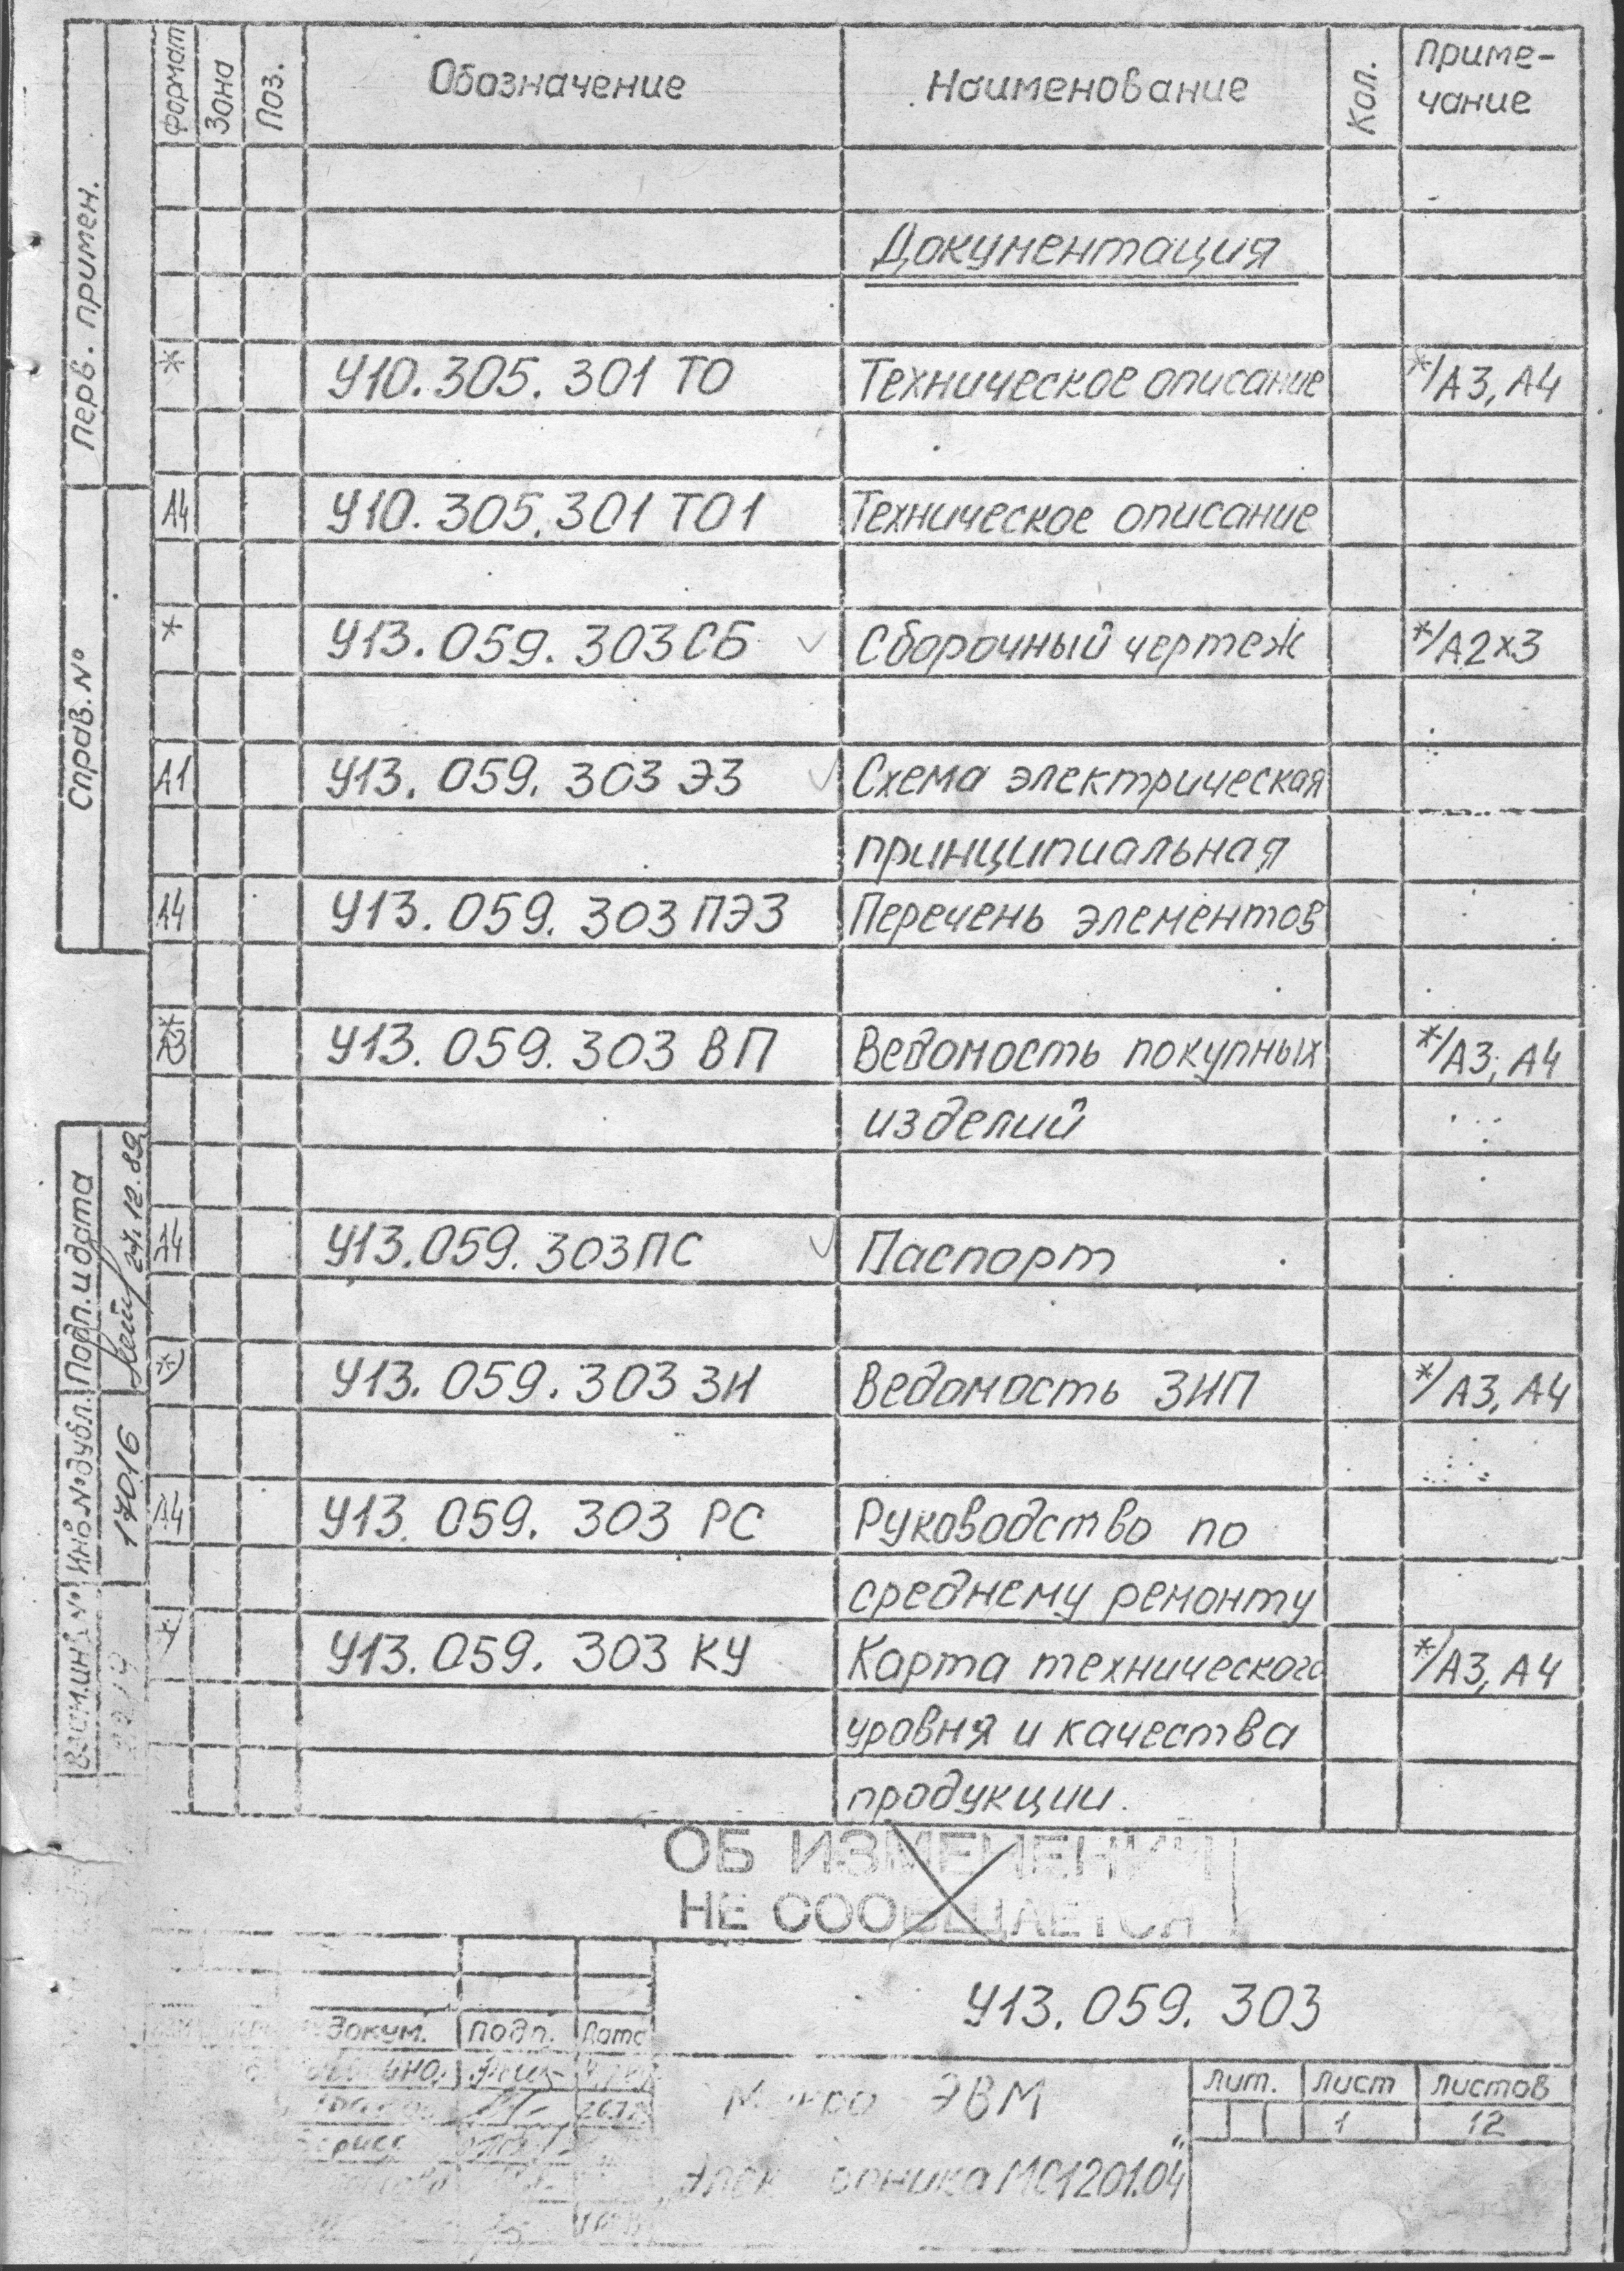 Формат Зона Поз. Обозначение Наименование Кол. Приме-
чание
Документация
* У10.305.301 ТО Техническое описание */А3, А4
А4 У10.305.301 ТО1 Техническое описание
* У13.059.303 СБ Сборочный чертеж */А2х3
А1 У13.059.303 Э3 Схема электрическая
принципиальная
А4 У13.059.303 ПЭ3 Перечень элементов
* У13.059.303 ВП Ведомость покупных */А3, А4
изделий
А4 У13.059.303 ПС Паспорт
*) У13.059.303 ЗИ Ведомость ЗИП */А3, А4
А4 У13.059.303 РС Руководство по
среднему ремонту
* У13.059.303 КУ Карта технического */А3, А4
уровня и качества
продукции.
Перв. примен.
Справ. №
Подп. и дата
27.12.89
Инв. № дубл.
17016
Взам. инв. №
ОБ ИЗМЕНЕНИИ
НЕ СООБЩАЕТСЯ
У13.059.303
докум. подп. Дата
Микро ЭВМ
„Электроника МС1201.04"
Лит. Лист Листов
1 12